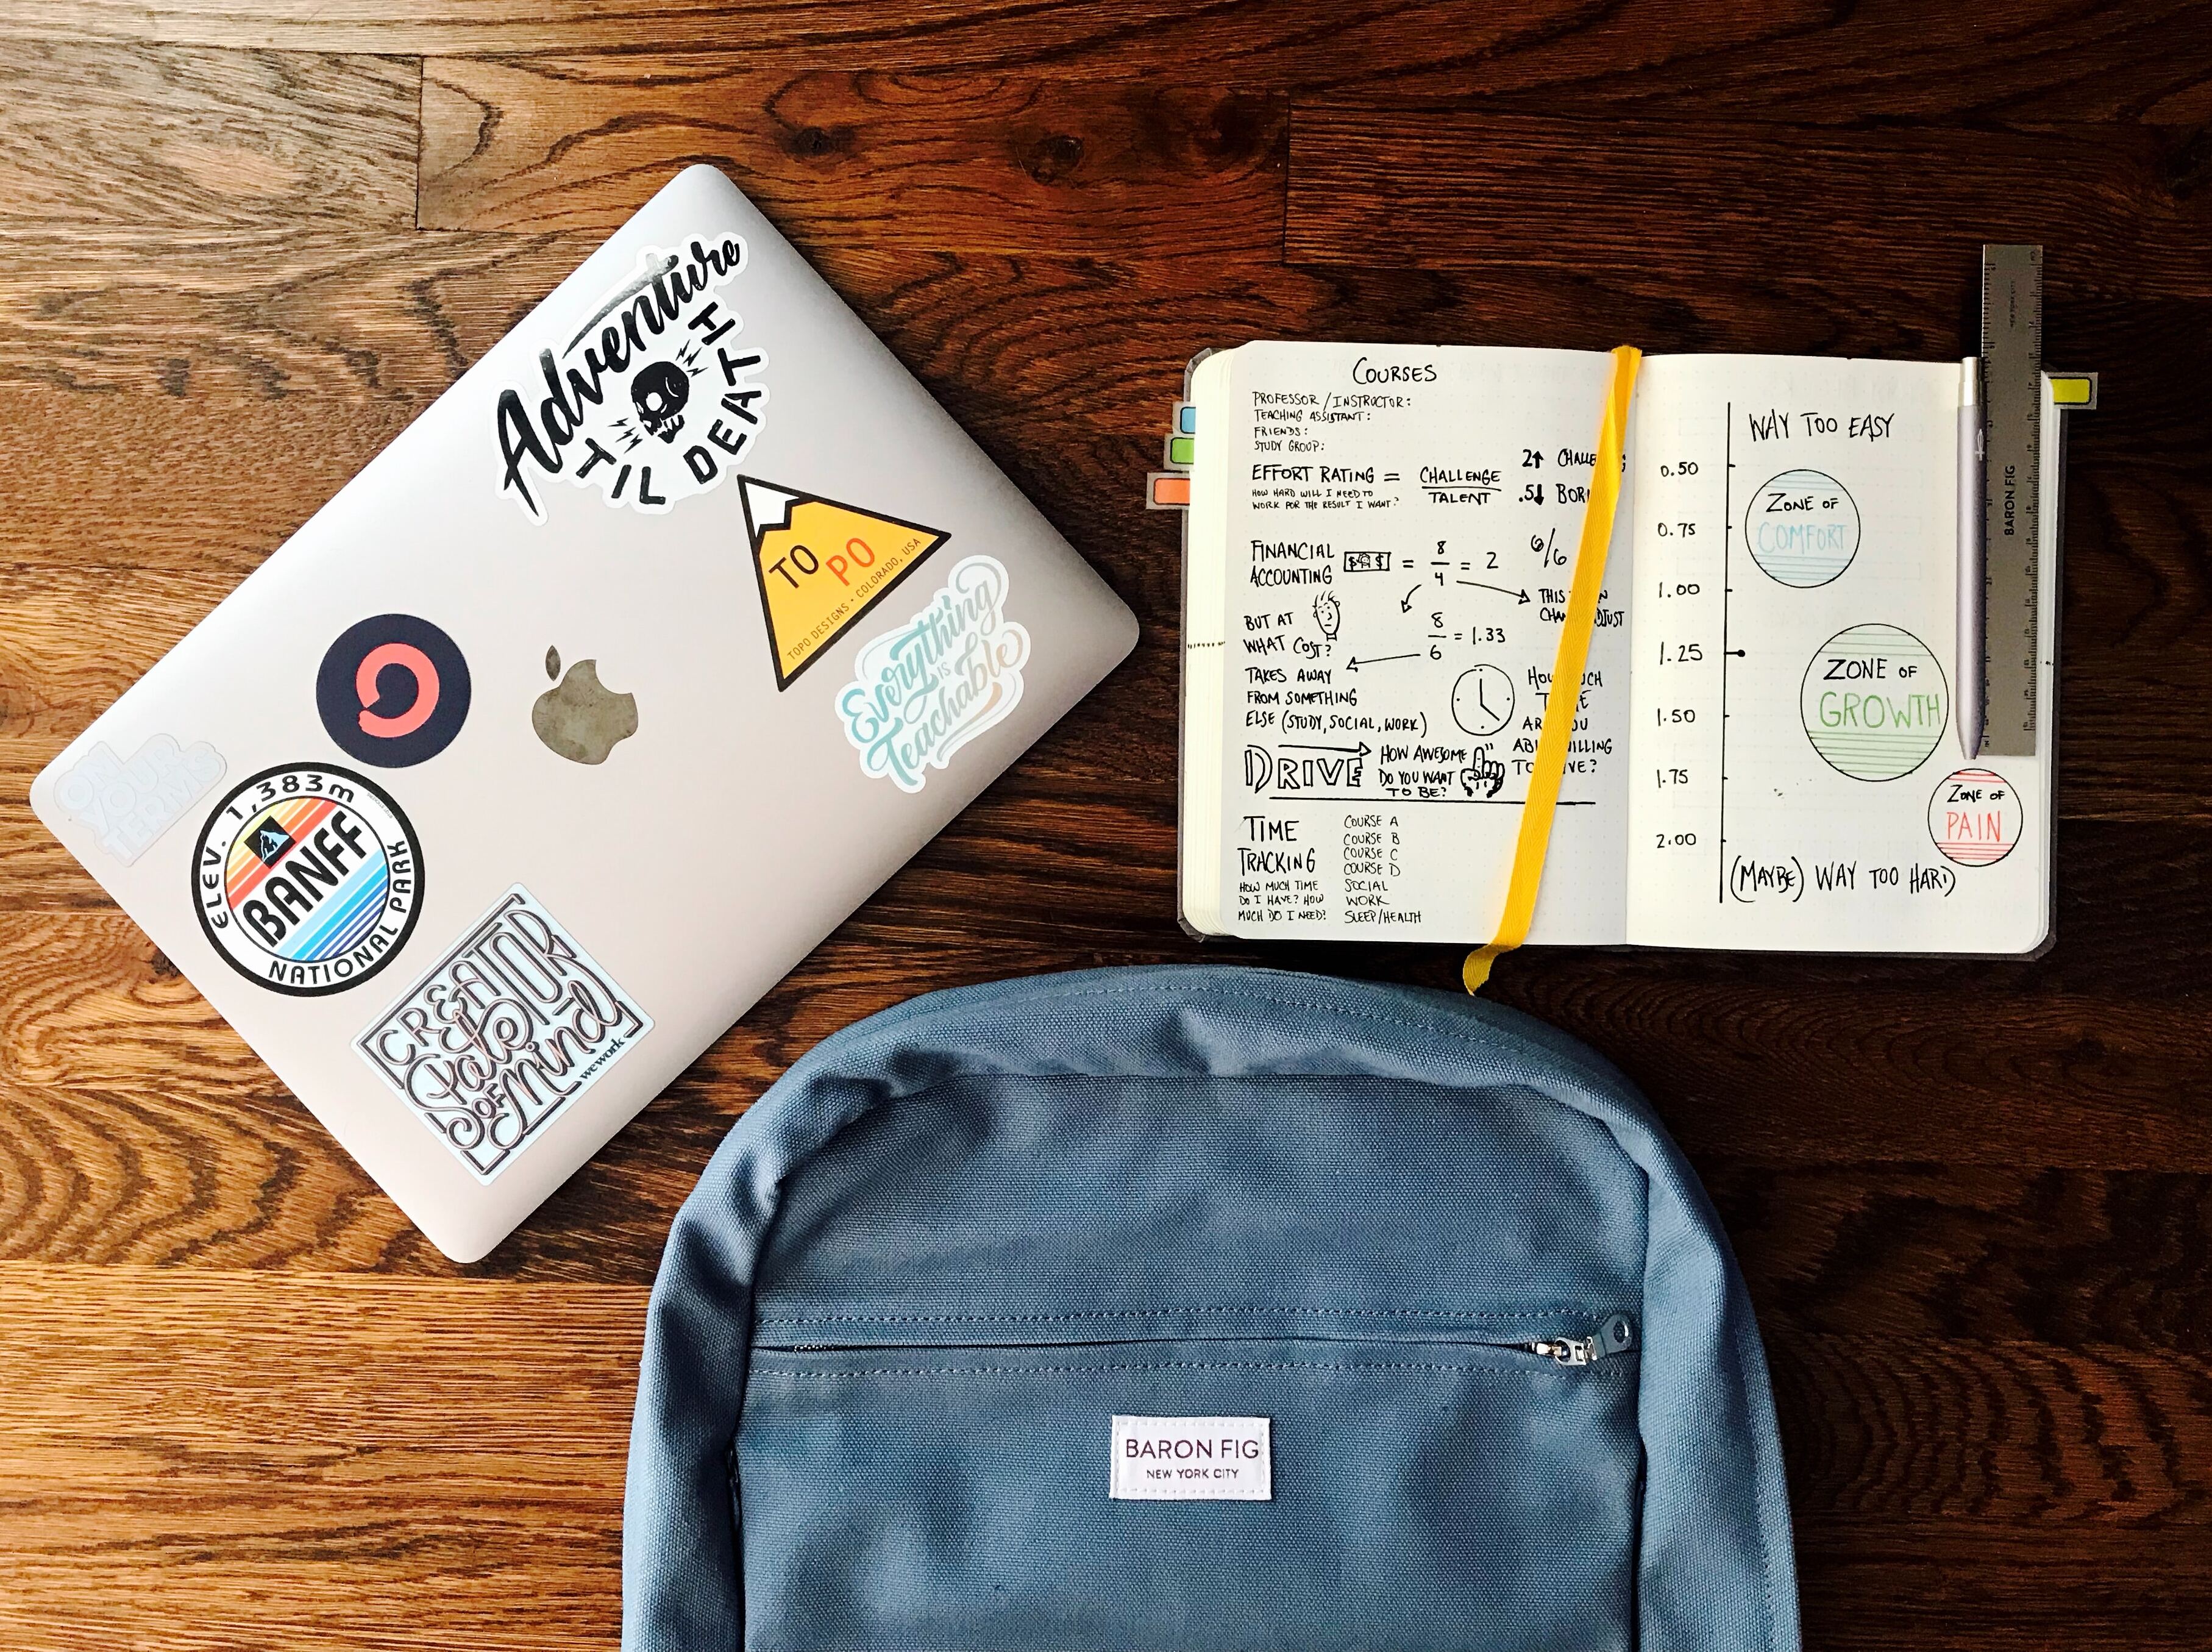 Adventure
'TIL DEATH
TO PO
TOPO DESIGNS • COLORADO, USA
Everything
IS
Teachable
ON
YOUR
TERMS
ELEV. 1,383m
BANFF
NATIONAL PARK
CREATOR
State
OF Mind
wework
COURSES
PROFESSOR/INSTRUCTOR:
TEACHING ASSISTANT:
FRIENDS:
STUDY GROUP:
EFFORT RATING = CHALLENGE
TALENT
HOW HARD WILL I NEED TO
WORK FOR THE RESULT I WANT?
2↑
.5↓
FINANCIAL
ACCOUNTING
$ $ = 8/4 = 2
6/6
THIS
BUT AT
WHAT COST?
8/6 = 1.33
TAKES AWAY
FROM SOMETHING
ELSE (STUDY, SOCIAL, WORK)
DRIVE
HOW AWESOME
DO YOU WANT
TO BE?
TIME
TRACKING
HOW MUCH TIME
DO I HAVE? HOW
MUCH DO I NEED?
COURSE A
COURSE B
COURSE C
COURSE D
SOCIAL
WORK
SLEEP/HEALTH
WAY TOO EASY
0.50
0.75
1.00
1.25
1.50
1.75
2.00
ZONE OF
COMFORT
ZONE OF
GROWTH
ZONE OF
PAIN
(MAYBE) WAY TOO HARD
BARON FIG
BARON FIG
NEW YORK CITY